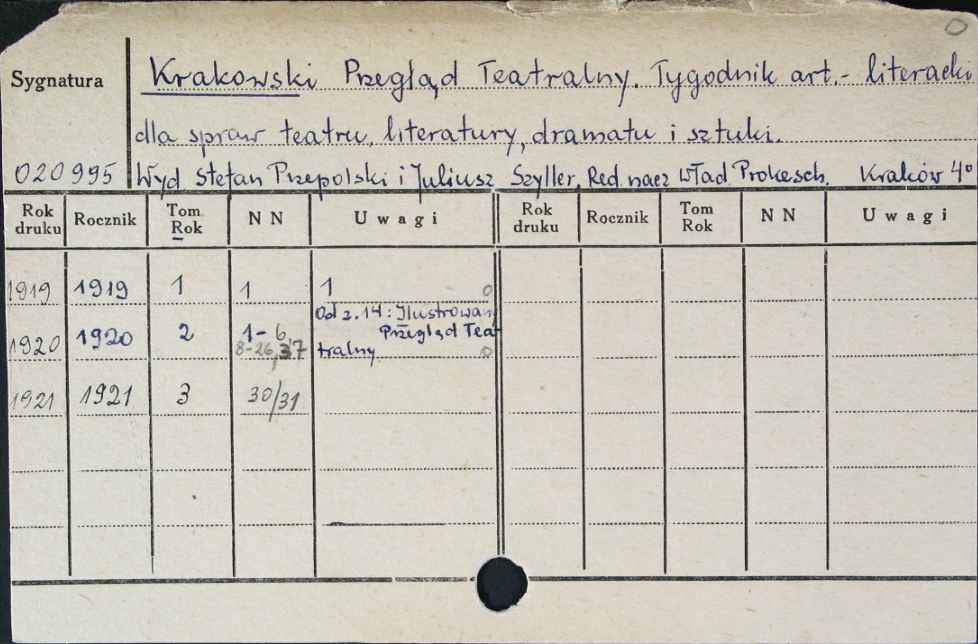 Sygnatura Krakowski Przegląd Teatralny. Tygodnik art.- literacki
dla spraw teatru, literatury, dramatu i sztuki.
020995 Wyd Stefan Przepolski i Juliusz Szyller, Red. nacz Wład. Prokesch. Kraków 4°
Rok druku Rocznik Tom Rok NN Uwagi Rok druku Rocznik Tom Rok NN Uwagi
1919 1919 1 1 1
Od z. 14: Ilustrowany
1920 1920 2 1-6 Przegląd Tea-
8-26, 37 tralny
1921 1921 3 30/31